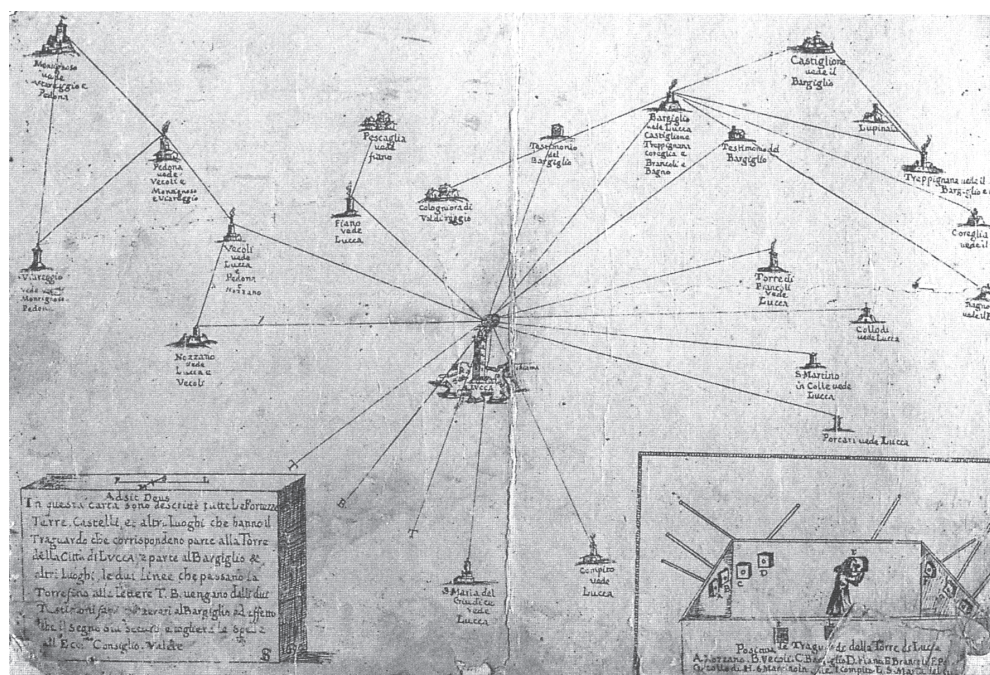 Monigroso
vede
Viareggio e
Pedona
Pedona
vede
Vecoli e
Monigroso
e Viareggio
Viareggio
vede
Monigroso
Pedona
Vecoli
vede
Lucca
e
Pedona
e
Nozzano
Nozzano
vede
Lucca e
Vecoli
Pescaglia
vede
fiano
Fiano
vede
Lucca
Cologniora di
Valdiroggio
Testimonio
del
Bargiglio
Bargiglio
vede Lucca
Castiglione
Treppignana
Coreglia e
Brancoli e
Bagno
Testimonio del
Bargiglio
Castiglione
vede il
Bargiglio
Lupinaia
Treppignana vede il
Bargiglio e
Coreglia
vede il
Bagno
vede il B
Torre di
Brancoli
vede
Lucca
Collodi
vede Lucca
S. Martino
in Colle vede
Lucca
Porcari vede Lucca
LVCCA
Compito
vede
Lucca
S. Maria del
Giudice
vede
Lucca
T
B
T
P
L
Adsit Deus
In questa carta sono descritte tutte le Fortezze
Terre, Castelli, et altri Luoghi che hanno il
Traguardo che corrispondeno parte alla Torre
della Città di LVCCA, e parte al Bargiglio &
altri Luoghi, le due linee che passano la
Torre sino alle lettere T. B. vengano dalli due
Testimoni al Bargiglio ad effetto
che il segno sia securo
all Ecc.mo Consiglio.
C
D
E
Traguardi della Torre di Lucca
A. Nozzano. B. Vecoli. C. Bargiglio D. Fiano E Brancoli F. P